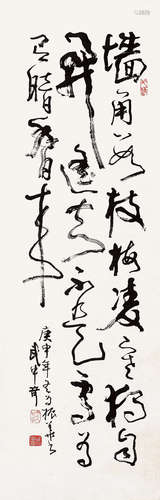 墙角数枝梅凌寒独自
开遥知不是雪为
有暗香来
庚申年
武中奇